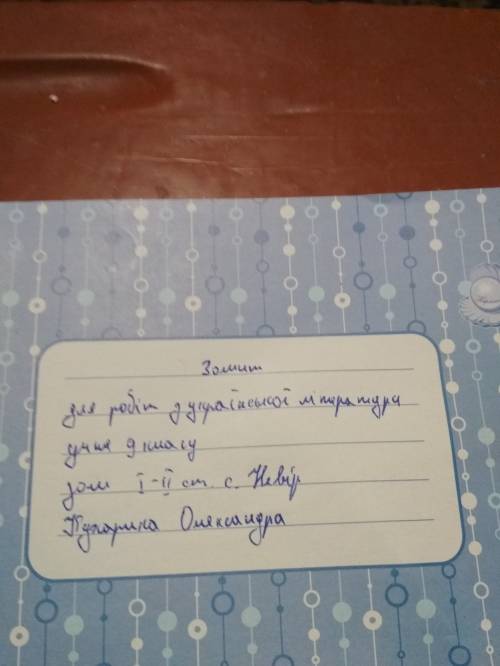 Зошит
для робіт з української література
учня 9 класу
зош I-II ст. с. Невір
Олександра